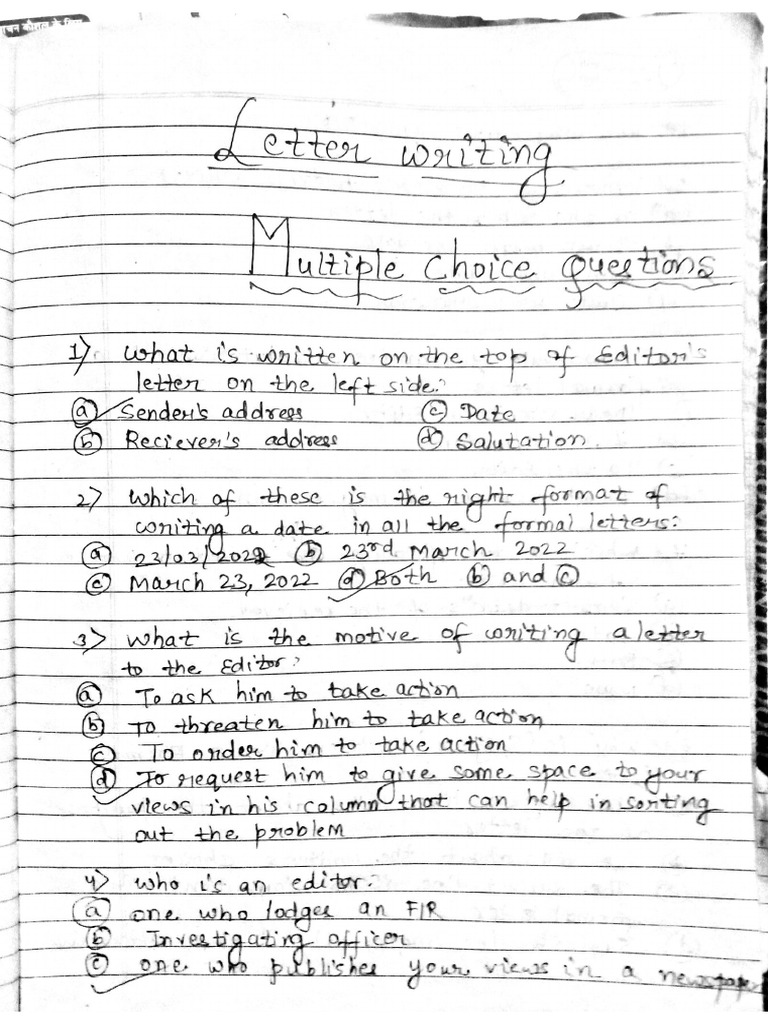 Letter writing
Multiple Choice Questions
1) What is written on the top of Editor's
letter on the left side?
(a) Sender's address (c) Date
(b) Reciever's address (d) Salutation
2) Which of these is the right format of
writing a date in all the formal letters:
(a) 23/03/2022 (b) 23rd March 2022
(c) March 23, 2022 (d) Both (b) and (c)
3) What is the motive of writing a letter
to the Editor?
(a) To ask him to take action
(b) To threaten him to take action
(c) To order him to take action
(d) To request him to give some space to your
views in his column that can help in sorting
out the problem
4) Who is an editor?
(a) one who lodges an FIR
(b) Investigating officer
(c) one who publishes your views in a newspaper